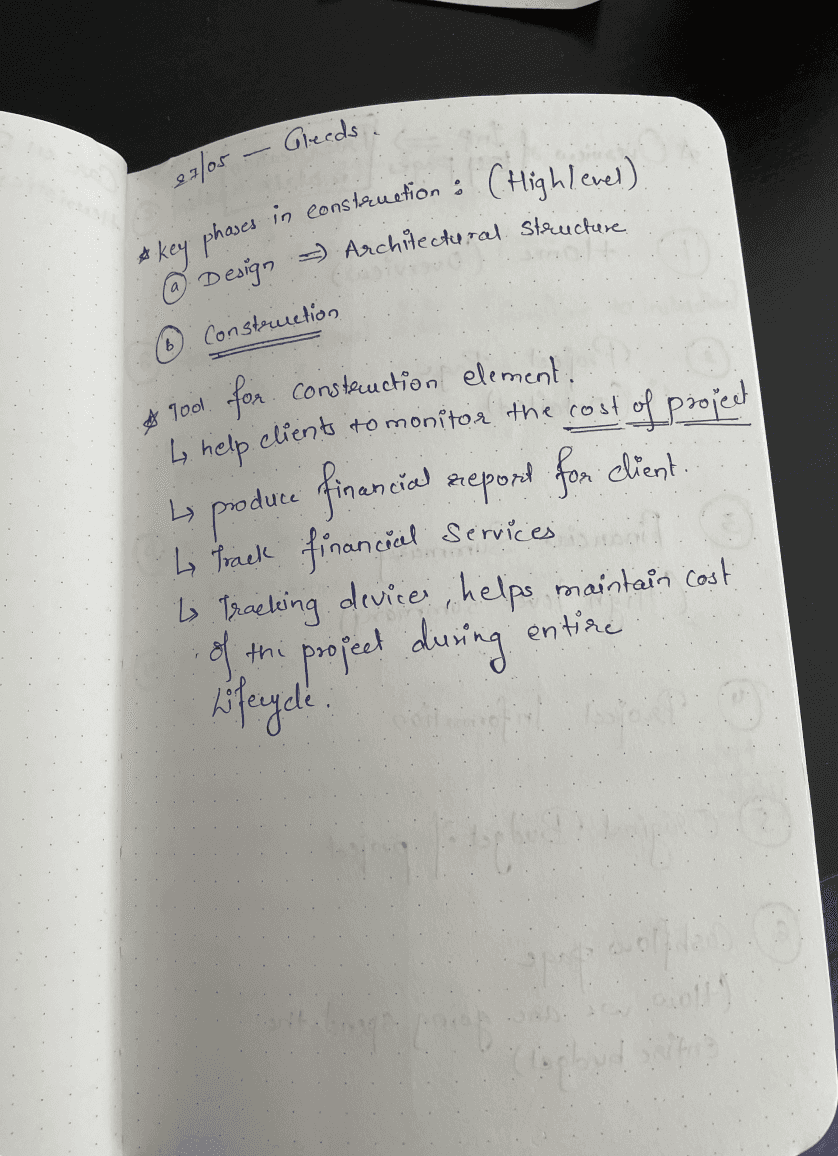 27/05 — Gleeds.
* key phases in construction : (High level)
(a) Design ⇒ Architectural structure
(b) Construction
* Tool for construction element.
↳ help clients to monitor the cost of project
↳ produce financial report for client.
↳ Track financial Services
↳ Tracking devices, helps maintain cost
of the project during entire
Lifecycle.